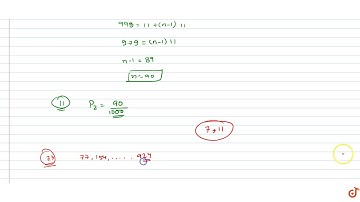 998 = 11 + (n-1) 11
979 = (n-1) 11
n-1 = 89
n = 90
11 P₂ = 90/1000
7 × 11
77 77, 154, ..... 924